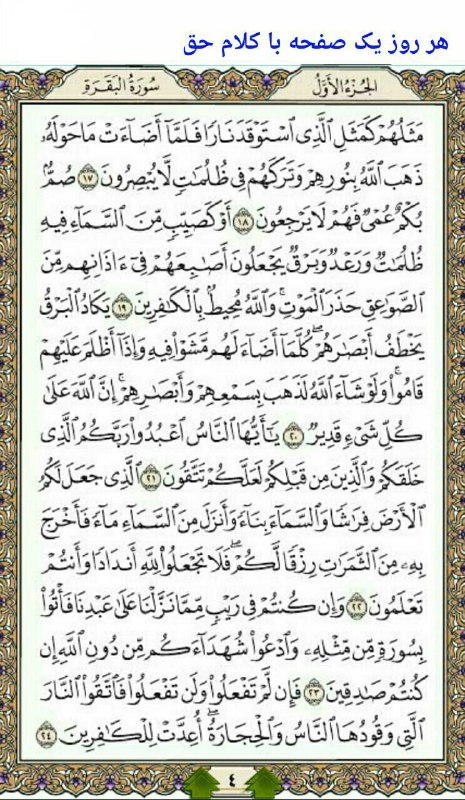 هر روز یک صفحه با کلام حق
الجُزْءُ الأَوَّلُ
سُورَةُ البَقَرَةِ
مَثَلُهُمْ كَمَثَلِ ٱلَّذِى ٱسْتَوْقَدَ نَارًا فَلَمَّآ أَضَآءَتْ مَا حَوْلَهُۥ
ذَهَبَ ٱللَّهُ بِنُورِهِمْ وَتَرَكَهُمْ فِى ظُلُمَٰتٍ لَّا يُبْصِرُونَ ١٧ صُمٌّۢ
بُكْمٌ عُمْىٌ فَهُمْ لَا يَرْجِعُونَ ١٨ أَوْ كَصَيِّبٍ مِّنَ ٱلسَّمَآءِ فِيهِ
ظُلُمَٰتٌ وَرَعْدٌ وَبَرْقٌ يَجْعَلُونَ أَصَٰبِعَهُمْ فِىٓ ءَاذَانِهِم مِّنَ
ٱلصَّوَٰعِقِ حَذَرَ ٱلْمَوْتِ ۚ وَٱللَّهُ مُحِيطٌۢ بِٱلْكَٰفِرِينَ ١٩ يَكَادُ ٱلْبَرْقُ
يَخْطَفُ أَبْصَٰرَهُمْ ۖ كُلَّمَآ أَضَآءَ لَهُم مَّشَوْا۟ فِيهِ وَإِذَآ أَظْلَمَ عَلَيْهِمْ
قَامُوا۟ ۚ وَلَوْ شَآءَ ٱللَّهُ لَذَهَبَ بِسَمْعِهِمْ وَأَبْصَٰرِهِمْ ۚ إِنَّ ٱللَّهَ عَلَىٰ
كُلِّ شَىْءٍ قَدِيرٌ ٢٠ يَٰٓأَيُّهَا ٱلنَّاسُ ٱعْبُدُوا۟ رَبَّكُمُ ٱلَّذِى
خَلَقَكُمْ وَٱلَّذِينَ مِن قَبْلِكُمْ لَعَلَّكُمْ تَتَّقُونَ ٢١ ٱلَّذِى جَعَلَ لَكُمُ
ٱلْأَرْضَ فِرَٰشًا وَٱلسَّمَآءَ بِنَآءً وَأَنزَلَ مِنَ ٱلسَّمَآءِ مَآءً فَأَخْرَجَ
بِهِۦ مِنَ ٱلثَّمَرَٰتِ رِزْقًا لَّكُمْ ۖ فَلَا تَجْعَلُوا۟ لِلَّهِ أَندَادًا وَأَنتُمْ
تَعْلَمُونَ ٢٢ وَإِن كُنتُمْ فِى رَيْبٍ مِّمَّا نَزَّلْنَا عَلَىٰ عَبْدِنَا فَأْتُوا۟
بِسُورَةٍ مِّن مِّثْلِهِۦ وَٱدْعُوا۟ شُهَدَآءَكُم مِّن دُونِ ٱللَّهِ إِن
كُنتُمْ صَٰدِقِينَ ٢٣ فَإِن لَّمْ تَفْعَلُوا۟ وَلَن تَفْعَلُوا۟ فَٱتَّقُوا۟ ٱلنَّارَ
ٱلَّتِى وَقُودُهَا ٱلنَّاسُ وَٱلْحِجَارَةُ ۖ أُعِدَّتْ لِلْكَٰفِرِينَ ٢٤
٤